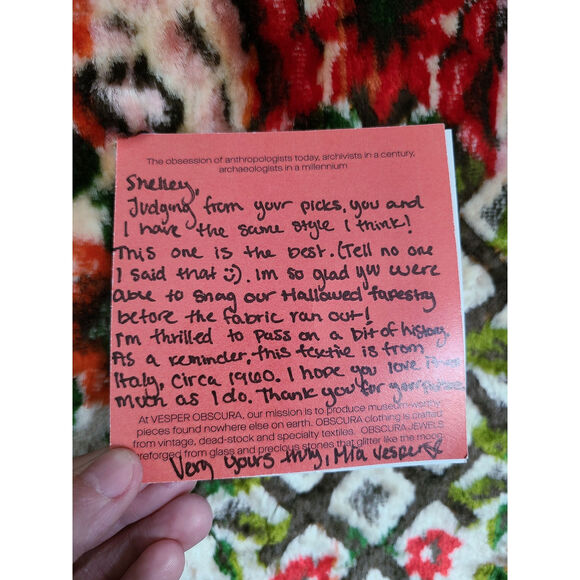 The obsession of anthropologists today, archivists in a century,
archaeologists in a millennium
Shelley,
Judging from your picks, you and
I have the same style I think!
This one is the best. (Tell no one
I said that :)). Im so glad you were
able to snag our Hallowed tapestry
before the fabric ran out!
I'm thrilled to pass on a bit of history.
As a reminder, this textile is from
Italy, Circa 1960. I hope you love it as
much as I do. Thank you for your
At VESPER OBSCURA, our mission is to produce museum-worthy
pieces found nowhere else on earth. OBSCURA clothing is crafted
from vintage, dead-stock and specialty textiles. OBSCURA JEWELS
reforged from glass and precious stones that glitter like the moon
Very yours truly, Mia Vesper